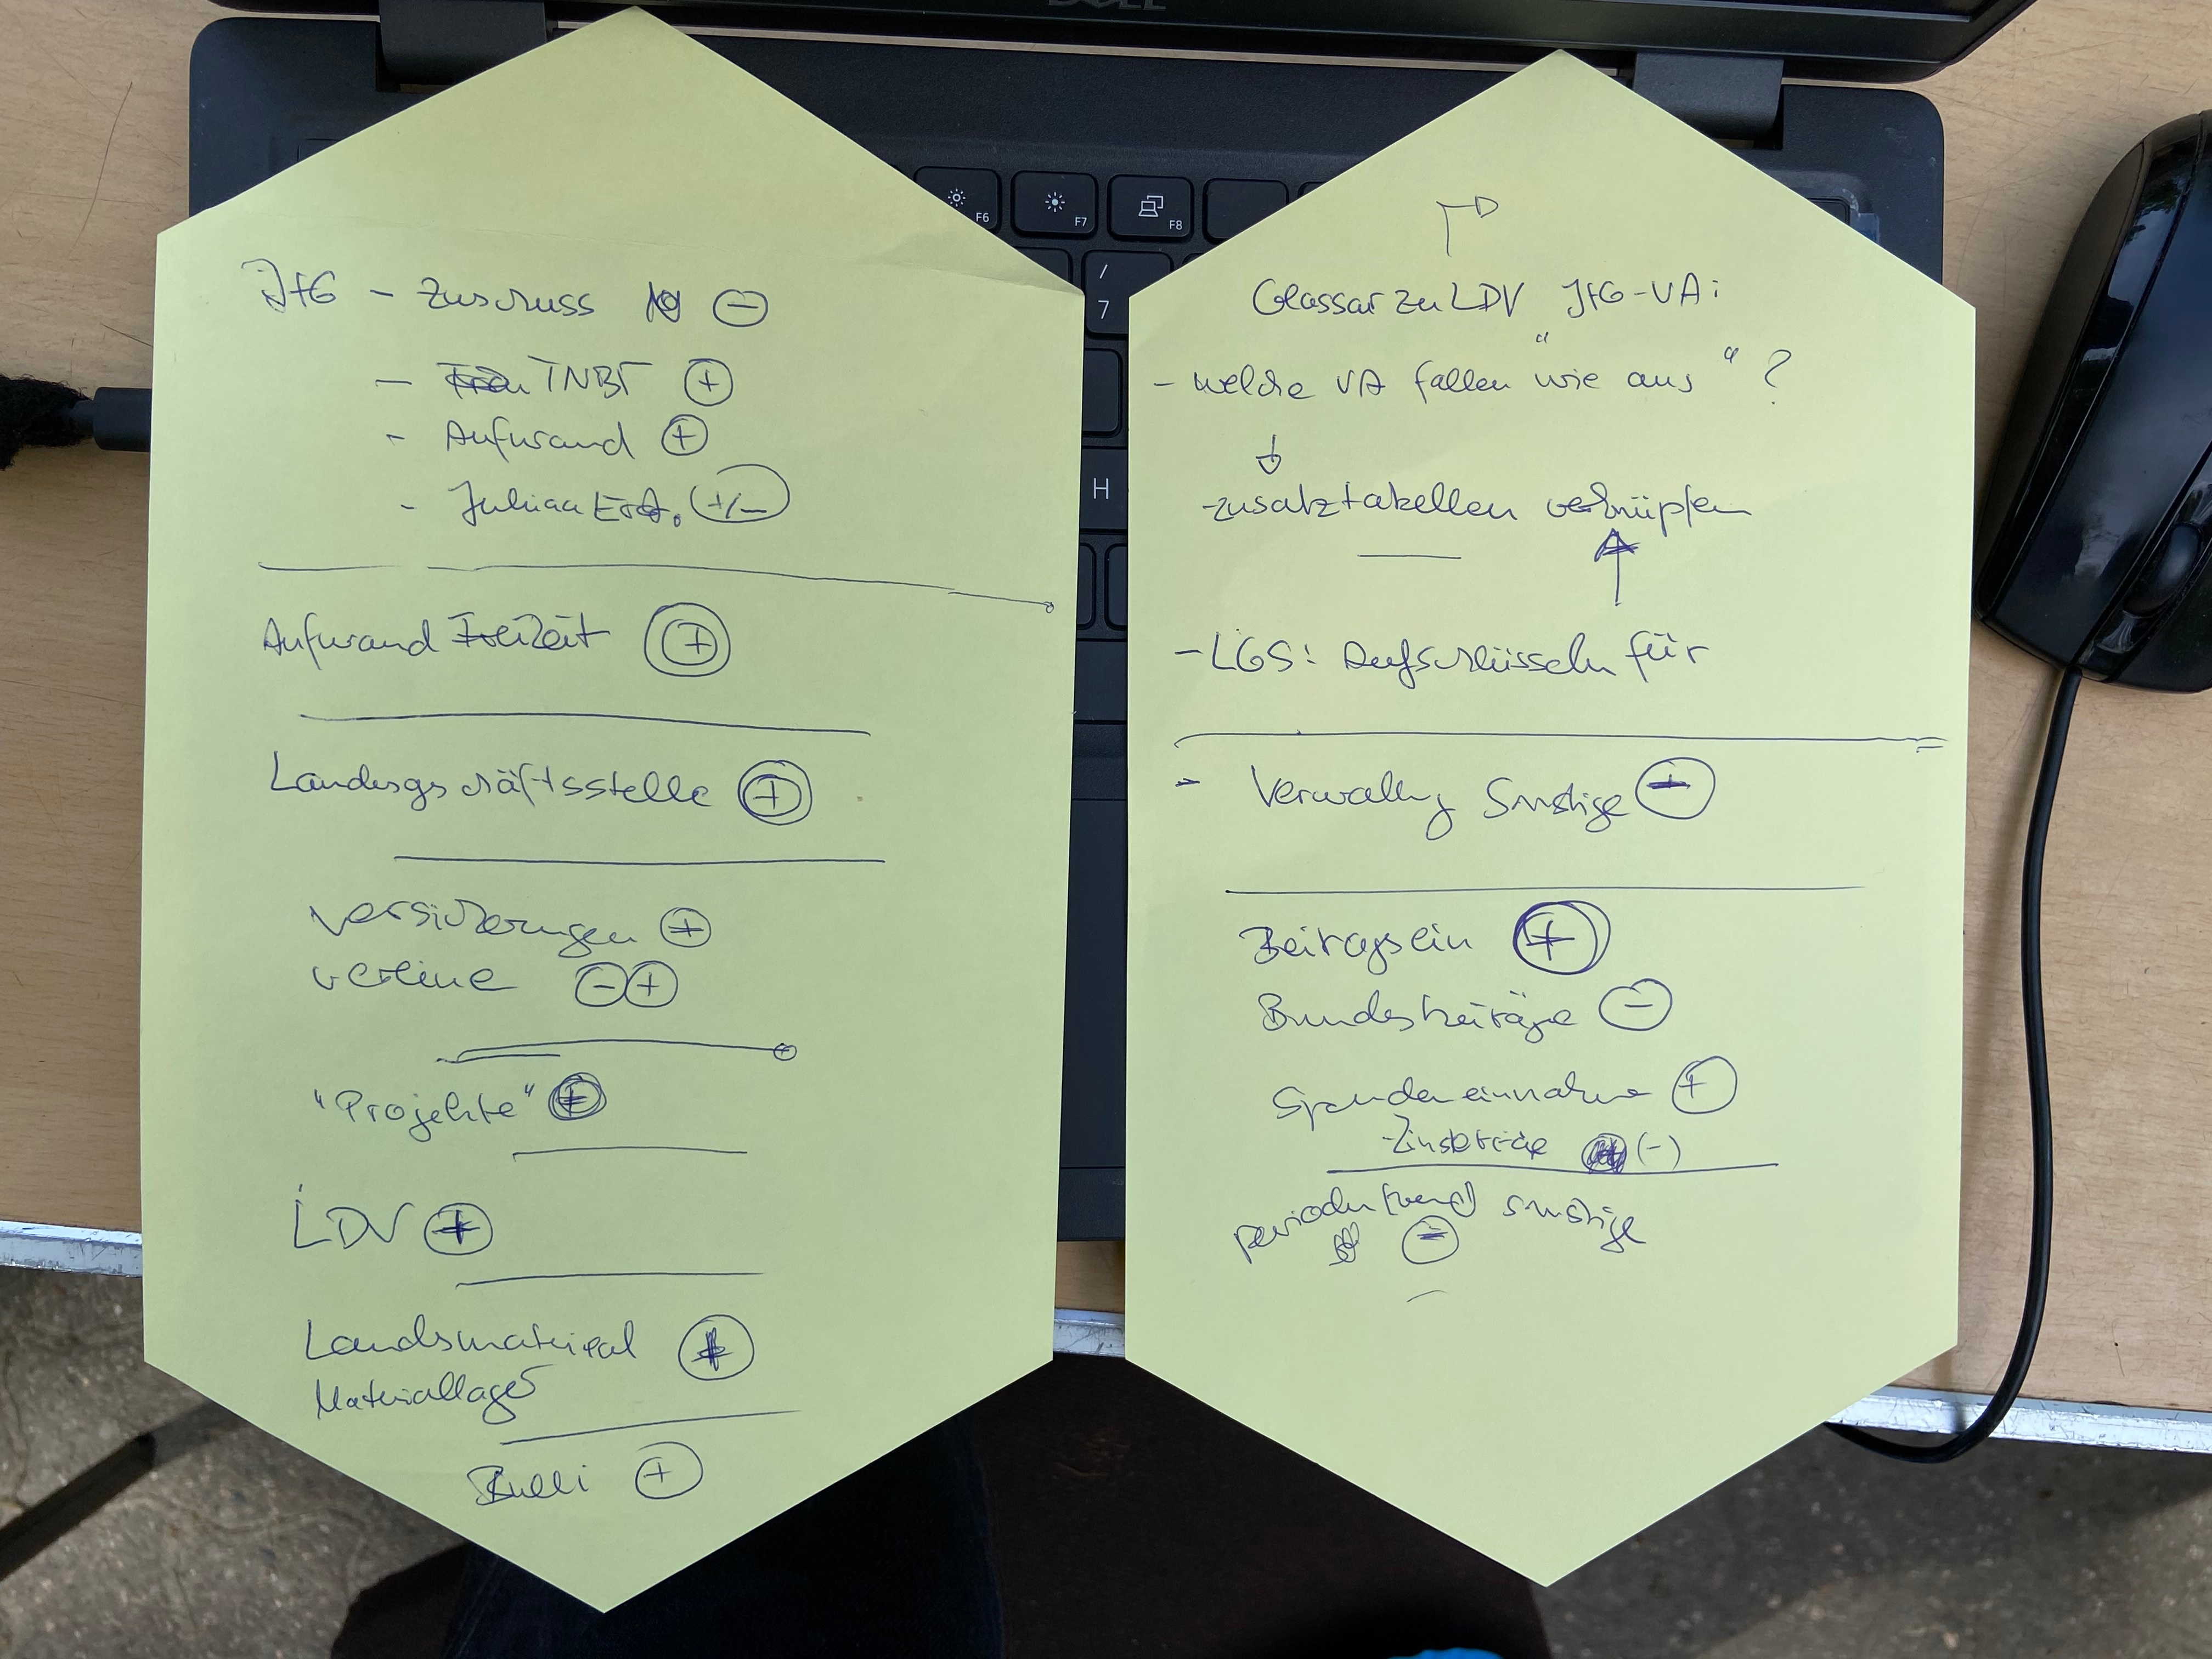 JtG - Zuschuss ⊖
- TNBT ⊕
- Aufwand ⊕
- (+/-)
Aufwand Freizeit ⊕
Landesgschäftsstelle ⊕
Versicherungen ⊕
Vereine ⊖⊕
"Projekte"
LDV ⊕
Landsmaterial ⊕
Materiallager
Bulli ⊕
Glossar zu LDV JtG-VA:
- welche VA fallen "wie aus" ?
- Zusatztabellen verknüpfen
- LGS: Aufschlüsseln für
- Verwaltung Sonstige
Beitragsein ⊕
Bundesbeiträge ⊖
Spendeneinnahme ⊕
(-)
sonstige
⊖
DELL
F6
F7
F8
/
7
H